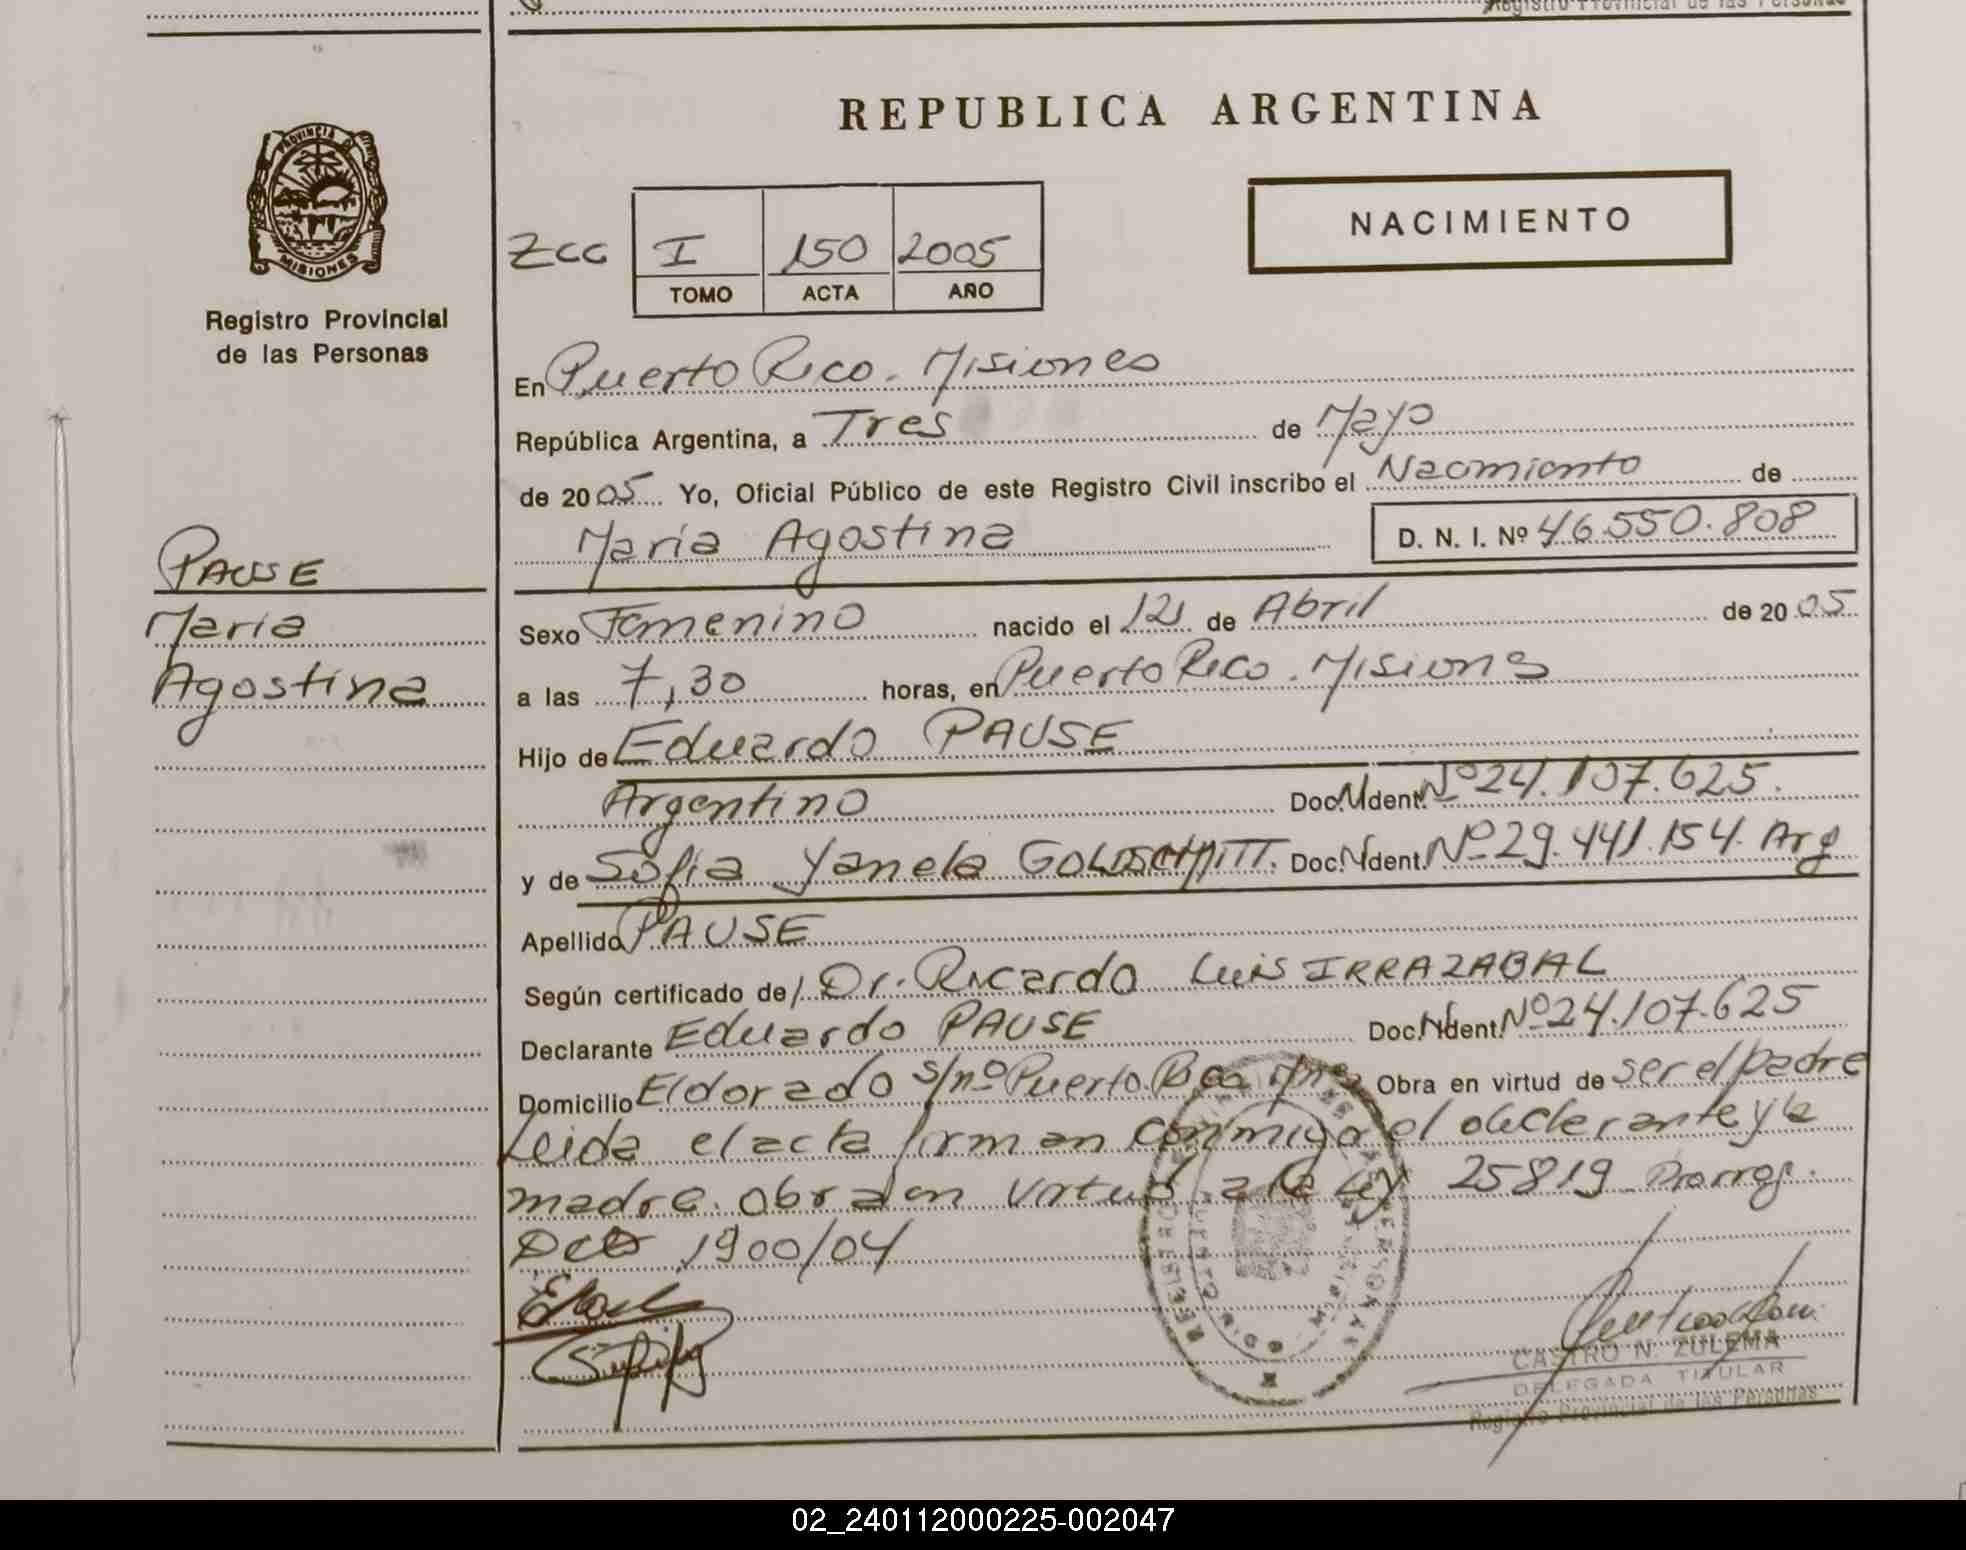 Registro Provincial de las Personas
REPUBLICA ARGENTINA
PROVINCIA
MISIONES
Registro Provincial
de las Personas
NACIMIENTO
Zcc I 150 2005
TOMO ACTA AÑO
En Puerto Rico. Misiones
República Argentina, a Tres de Mayo
de 2005 Yo, Oficial Público de este Registro Civil inscribo el Nacimiento de
María Agostina D. N. I. Nº 46.550.808
PAUSE
María
Agostina
Sexo Femenino nacido el 12 de Abril de 2005
a las 7,30 horas, en Puerto Rico. Misions
Hijo de Eduardo PAUSE
Argentino Doc. Ident. Nº 24.107.625.
y de Sofia Yanela GOLDSCHMITT. Doc. Ident. Nº 29.441.154. Arg
Apellido PAUSE
Según certificado de Dr. Ricardo Luis IRRAZABAL
Declarante Eduardo PAUSE Doc. Ident. Nº 24.107.625
Domicilio Eldorado s/nº Puerto Rico Mnes Obra en virtud de ser el padre
Leida el acta firman conmigo el declarante y la
madre. obra en virtud a la Ley 25819 Prorrog.
Dcto 1900/04
CASTRO N. ZULEMA
DELEGADA TITULAR
Registro Provincial de las Personas
02_240112000225-002047